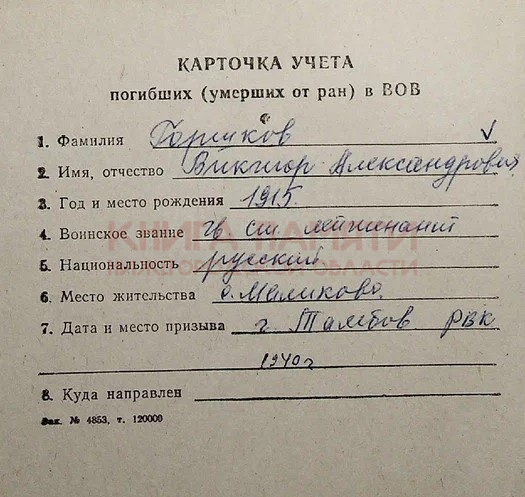 КАРТОЧКА УЧЕТА
погибших (умерших от ран) в ВОВ
1. Фамилия Горшков
2. Имя, отчество Виктор Александрович
3. Год и место рождения 1915.
4. Воинское звание гв ст. лейтенант
КНИГА ПАМЯТИ
5. Национальность русский
ОБЛАСТИ
6. Место жительства с. Маликово.
7. Дата и место призыва г. Тамбов РВК
1940 г
8. Куда направлен
Зак. № 4853, т. 120000